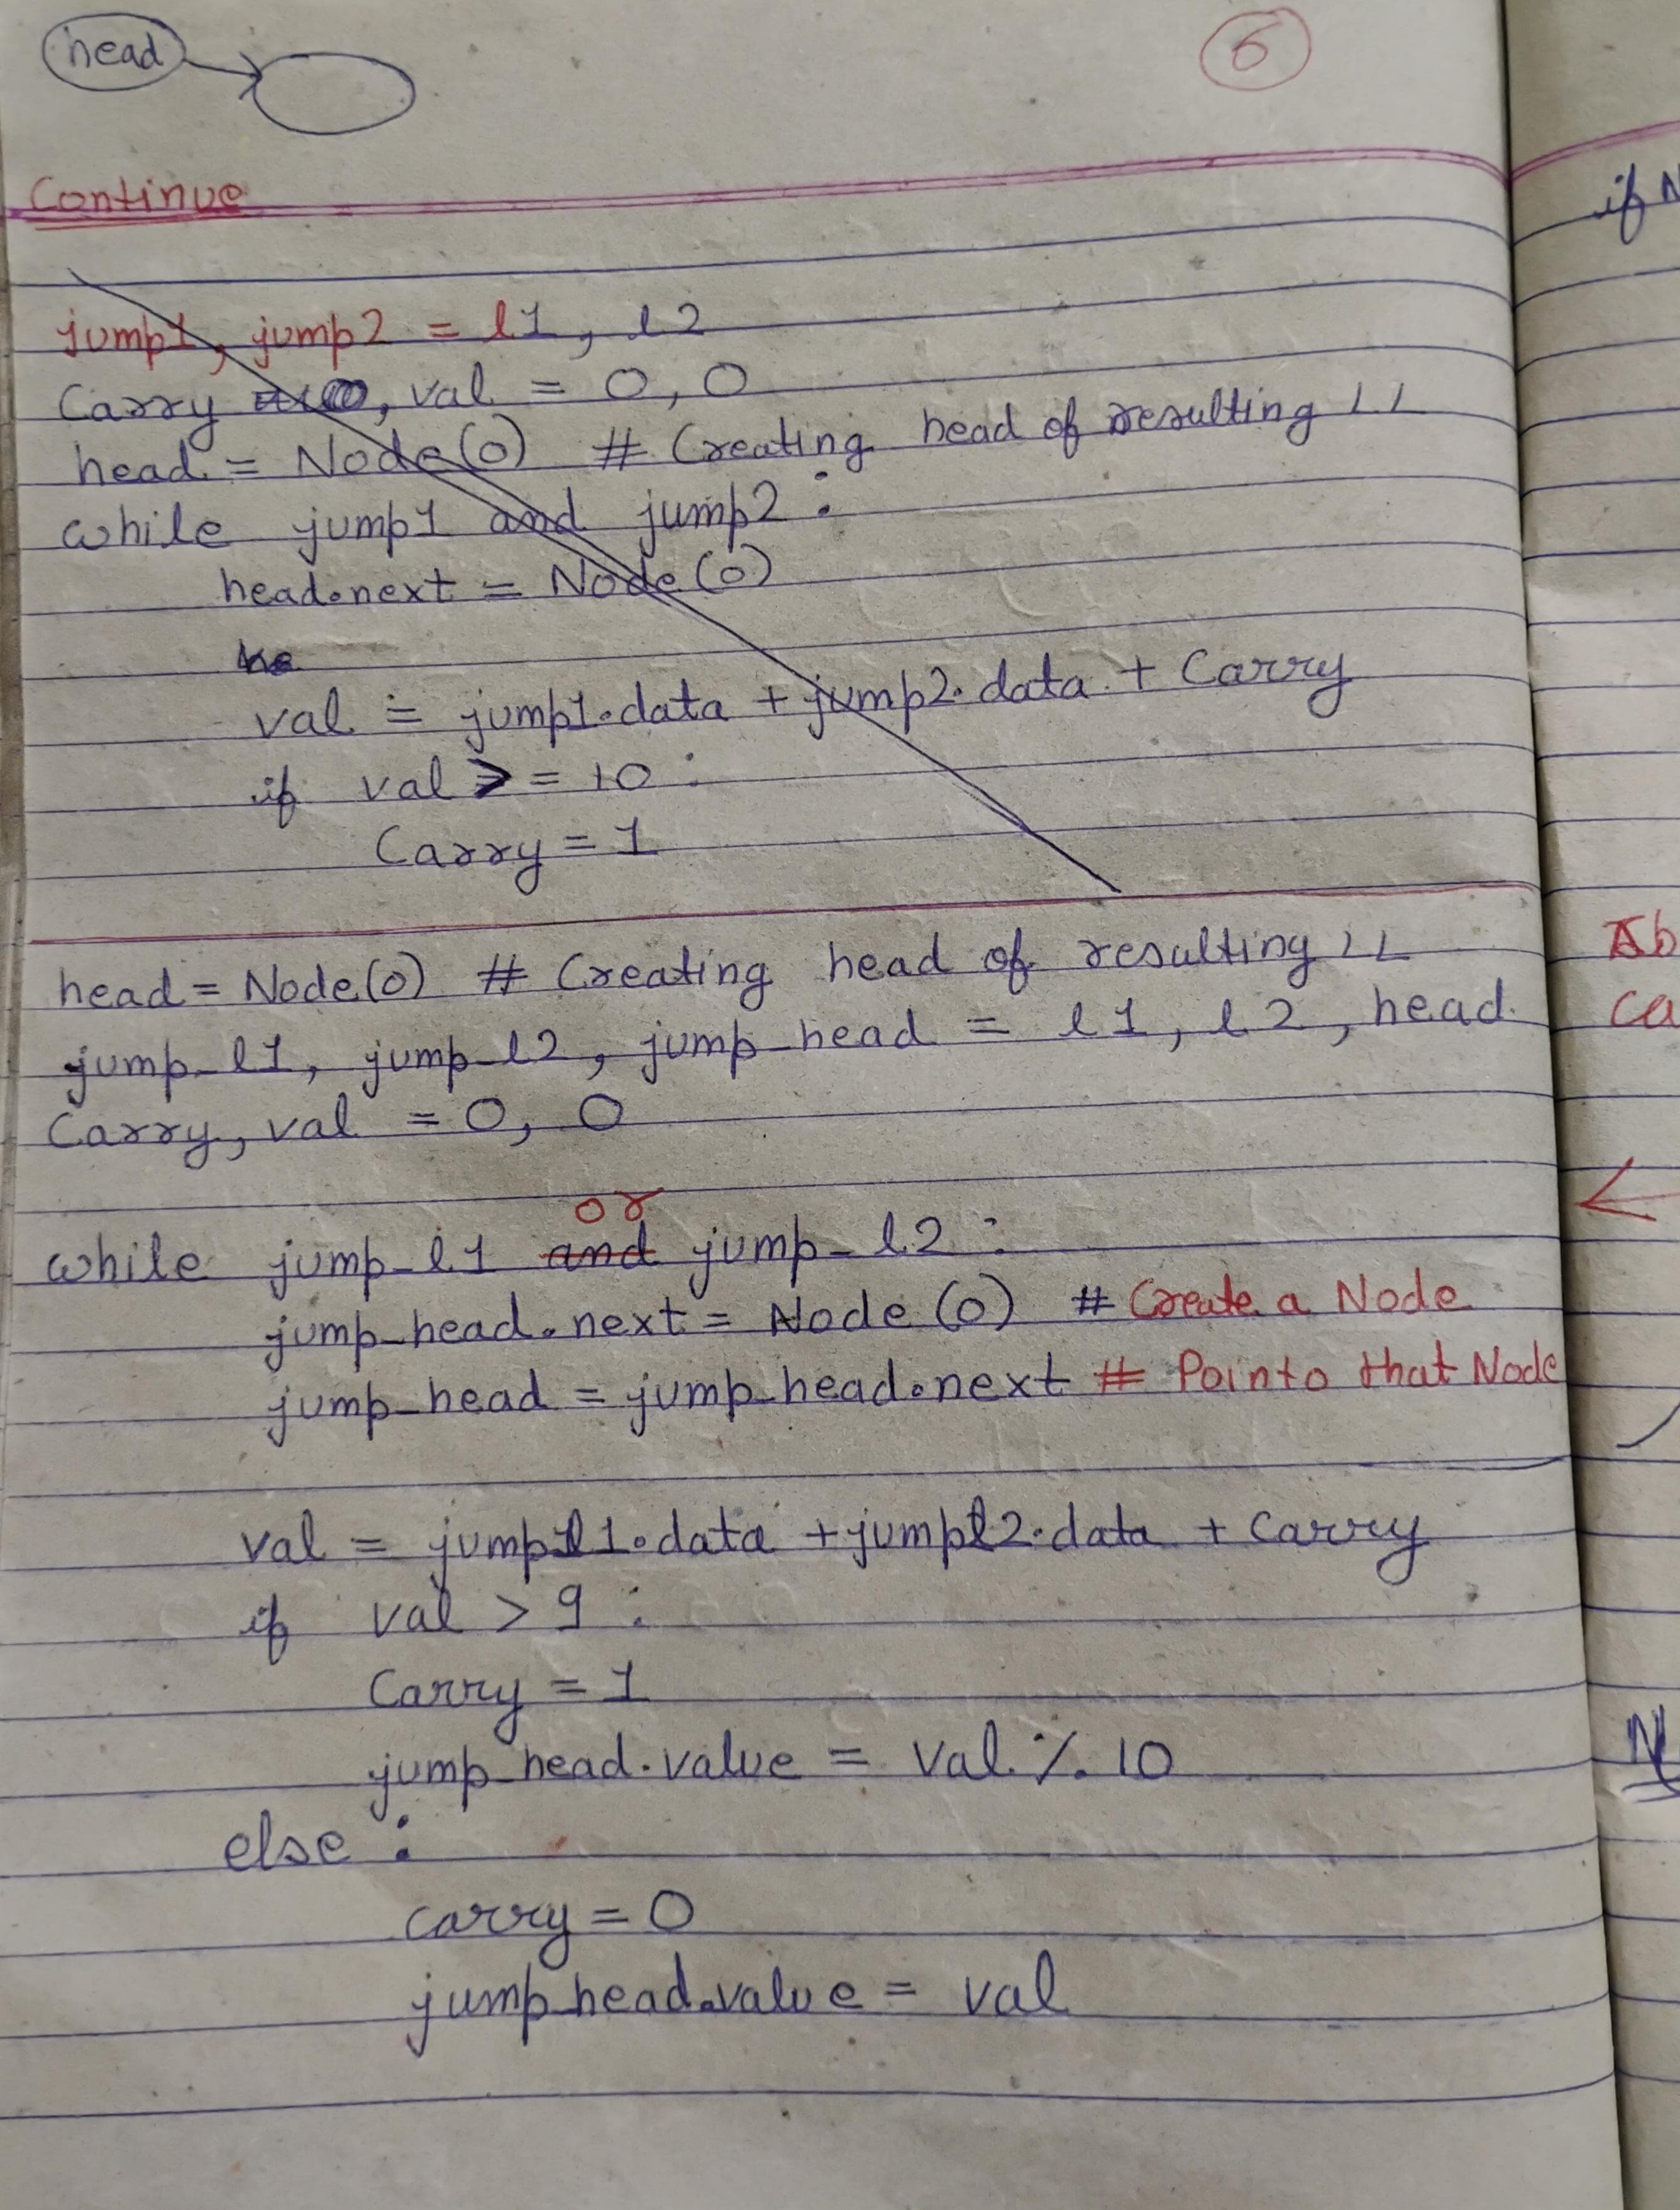 head
6
Continue
jump1, jump2 = l1, l2
Carry , val = 0, 0
head = Node(0) # Creating head of resulting LL
while jump1 and jump2 :
head.next = Node(0)
he
val = jump1.data + jump2.data + Carry
if val >= 10 :
Carry = 1
head = Node(0) # Creating head of resulting LL
jump_l1, jump_l2, jump_head = l1, l2, head
Carry, val = 0, 0
or
while jump_l1 and jump_l2 :
jump_head.next = Node(0) # Create a Node
jump_head = jump_head.next # Pointo that Node
val = jumpl1.data + jumpl2.data + Carry
if val > 9 :
Carry = 1
jump_head.value = val % 10
else :
carry = 0
jump_head.value = val
if N
Ab
Ca
N